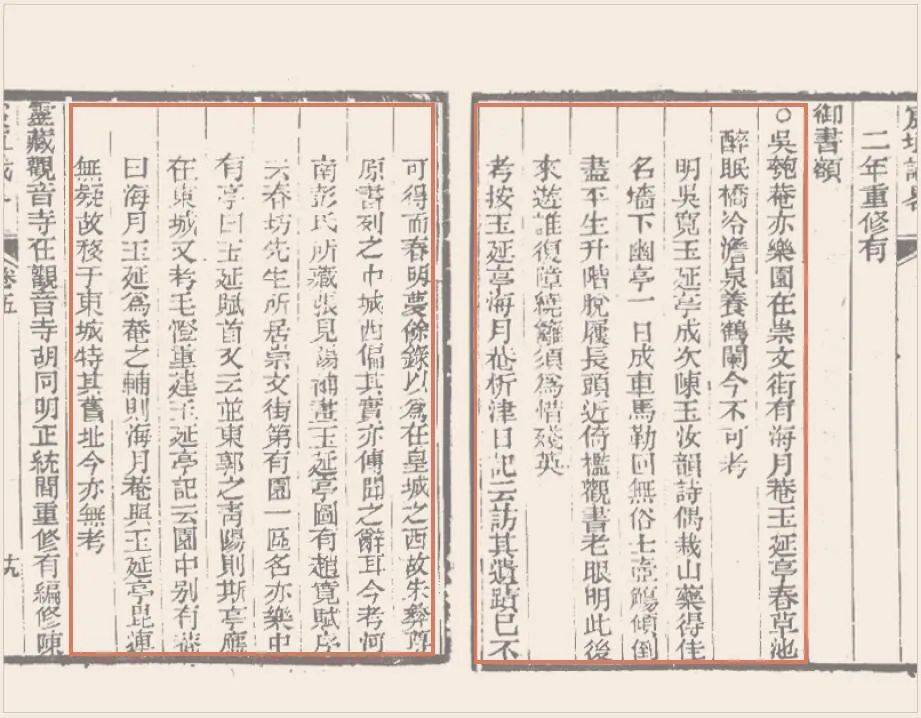 二年重修有
御書額
○吳匏菴亦樂園在崇文街有海月菴玉延亭春草池
醉眠橋冷澹泉養鶴闌今不可考
明吳寬玉延亭成次陳玉汝韻詩偶栽山藥得佳
名墻下幽亭一日成車馬勒回無俗士壺觴傾倒
盡平生升階脫屨長頭近倚檻觀書老眼明此後
來遊誰復障繞籬須為惜殘英
考按玉延亭海月菴析津日記云訪其遺蹟已不
可得而春明夢餘錄以為在皇城之西故朱彝尊
原書列之中城西偏其實亦傳聞之辭耳今考河
南彭氏所藏張見陽補畫玉延亭圖有趙寬賦序
云春坊先生所居崇文街第有園一區名亦樂中
有亭曰玉延賦首又云並東郭之靑陽則斯亭應
在東城又考毛澄重建玉延亭記云園中別有菴
曰海月玉延為菴之輔則海月菴與玉延亭毘連
無疑故移于東城特其舊址今亦無考
靈藏觀音寺在觀音寺胡同明正統間重修有編修陳
卷五